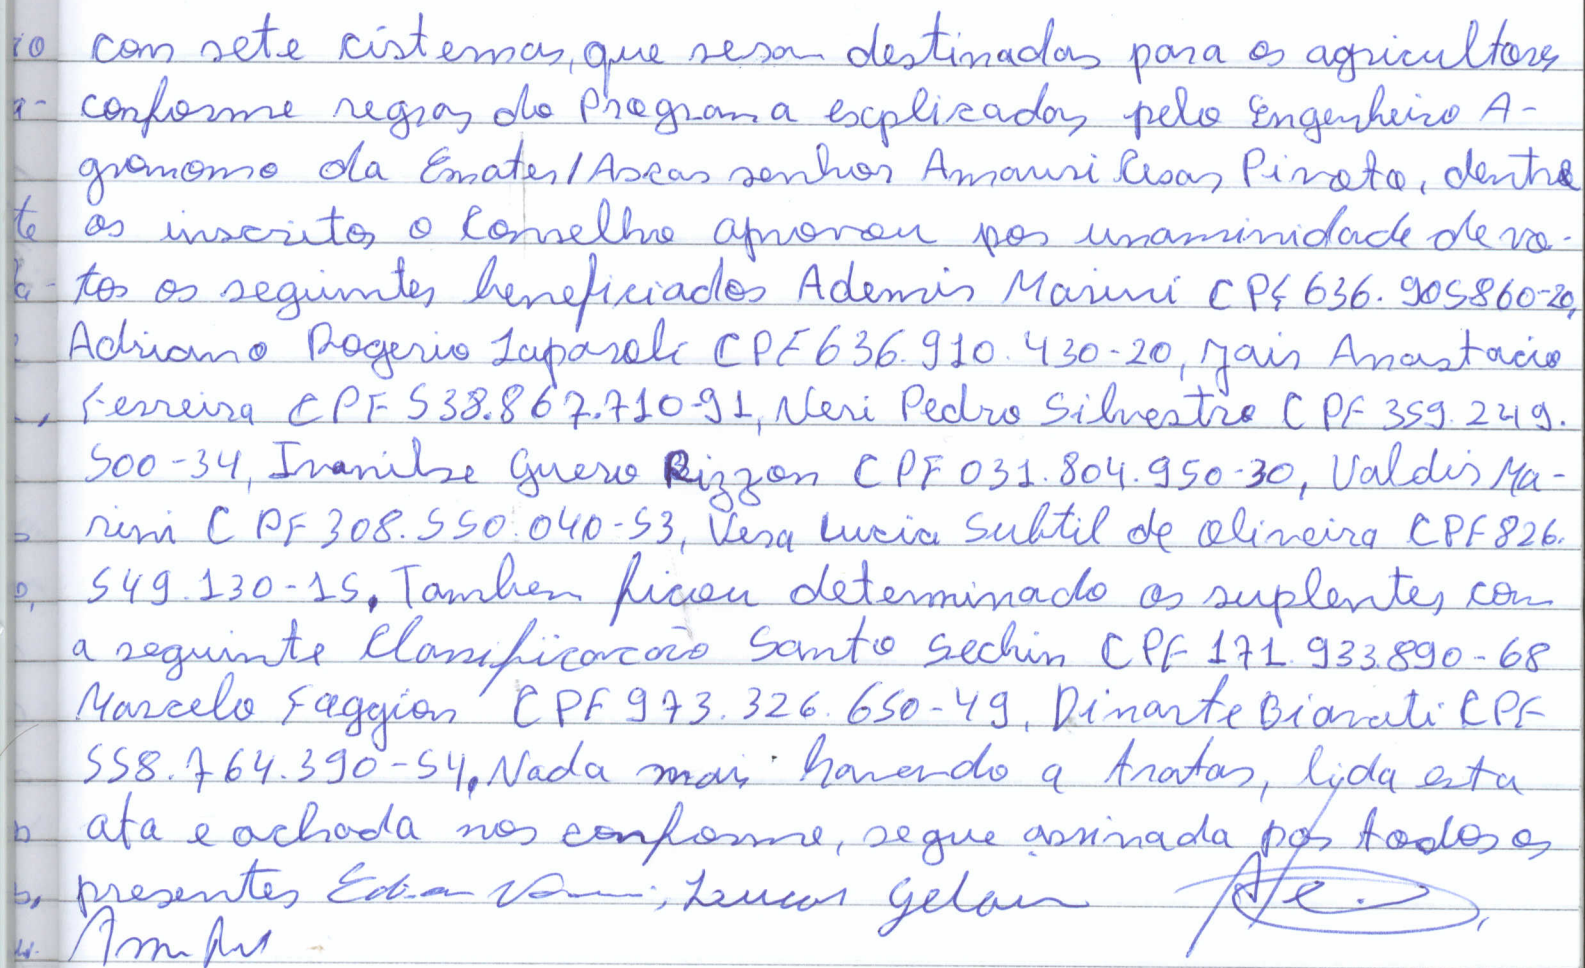 com sete cisternas, que seram destinadas para os agricultores
conforme regras do Programa esplicadas pelo Engenheiro A-
gronomo da Emater/Ascar senhor Amauri Cesar Pivoto, dentre
os inscritos o Conselho aprovou por unaminidade de vo-
tos os seguintes beneficiados Ademir Marini CPF 636.905860-20,
Adriano Rogerio Laparoli CPF 636.910.430-20, Jair Anastacio
Ferreira CPF 538.867.710-91, Neri Pedro Silvestro CPF 359.249.
500-34, Ivanilse Guero Rizzon CPF 031.804.950-30, Valdir Ma-
rini CPF 308.550.040-53, Vera Lucia Subtil de Oliveira CPF 826.
549.130-15. Tambem ficou determinado os suplentes com
a seguinte Classificacão Santo Sechin CPF 171.933.890-68
Marcelo Faggion CPF 973.326.650-49, Dinarte Biavati CPF
558.764.390-54, Nada mais havendo a tratar, lida esta
ata e achada nos conforme, segue assinada por todos os
presentes Lucas Gelain